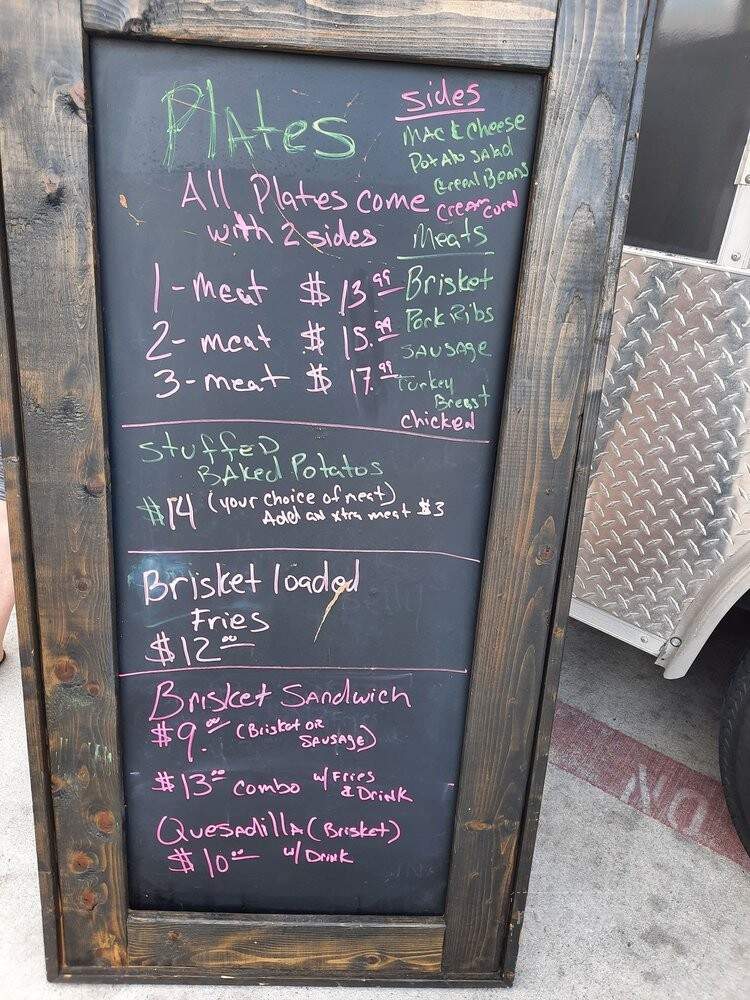 Plates
All Plates come
with 2 sides
1-meat $13.99
2-meat $15.99
3-meat $17.99
sides
MAC & Cheese
Potato salad
Green Beans
Cream Corn
Meats
Brisket
Pork Ribs
SAUSAge
Turkey
Breast
chicken
Stuffed
BAked Potatos
$14 (your choice of meat)
Add an xtra meat $3
Brisket loaded
Fries
$12.00
Brisket Sandwich
$9.00 (Brisket or
SAUSAge)
$13.00 combo w/Fries
& Drink
Quesadilla (Brisket)
$10.00 w/ Drink